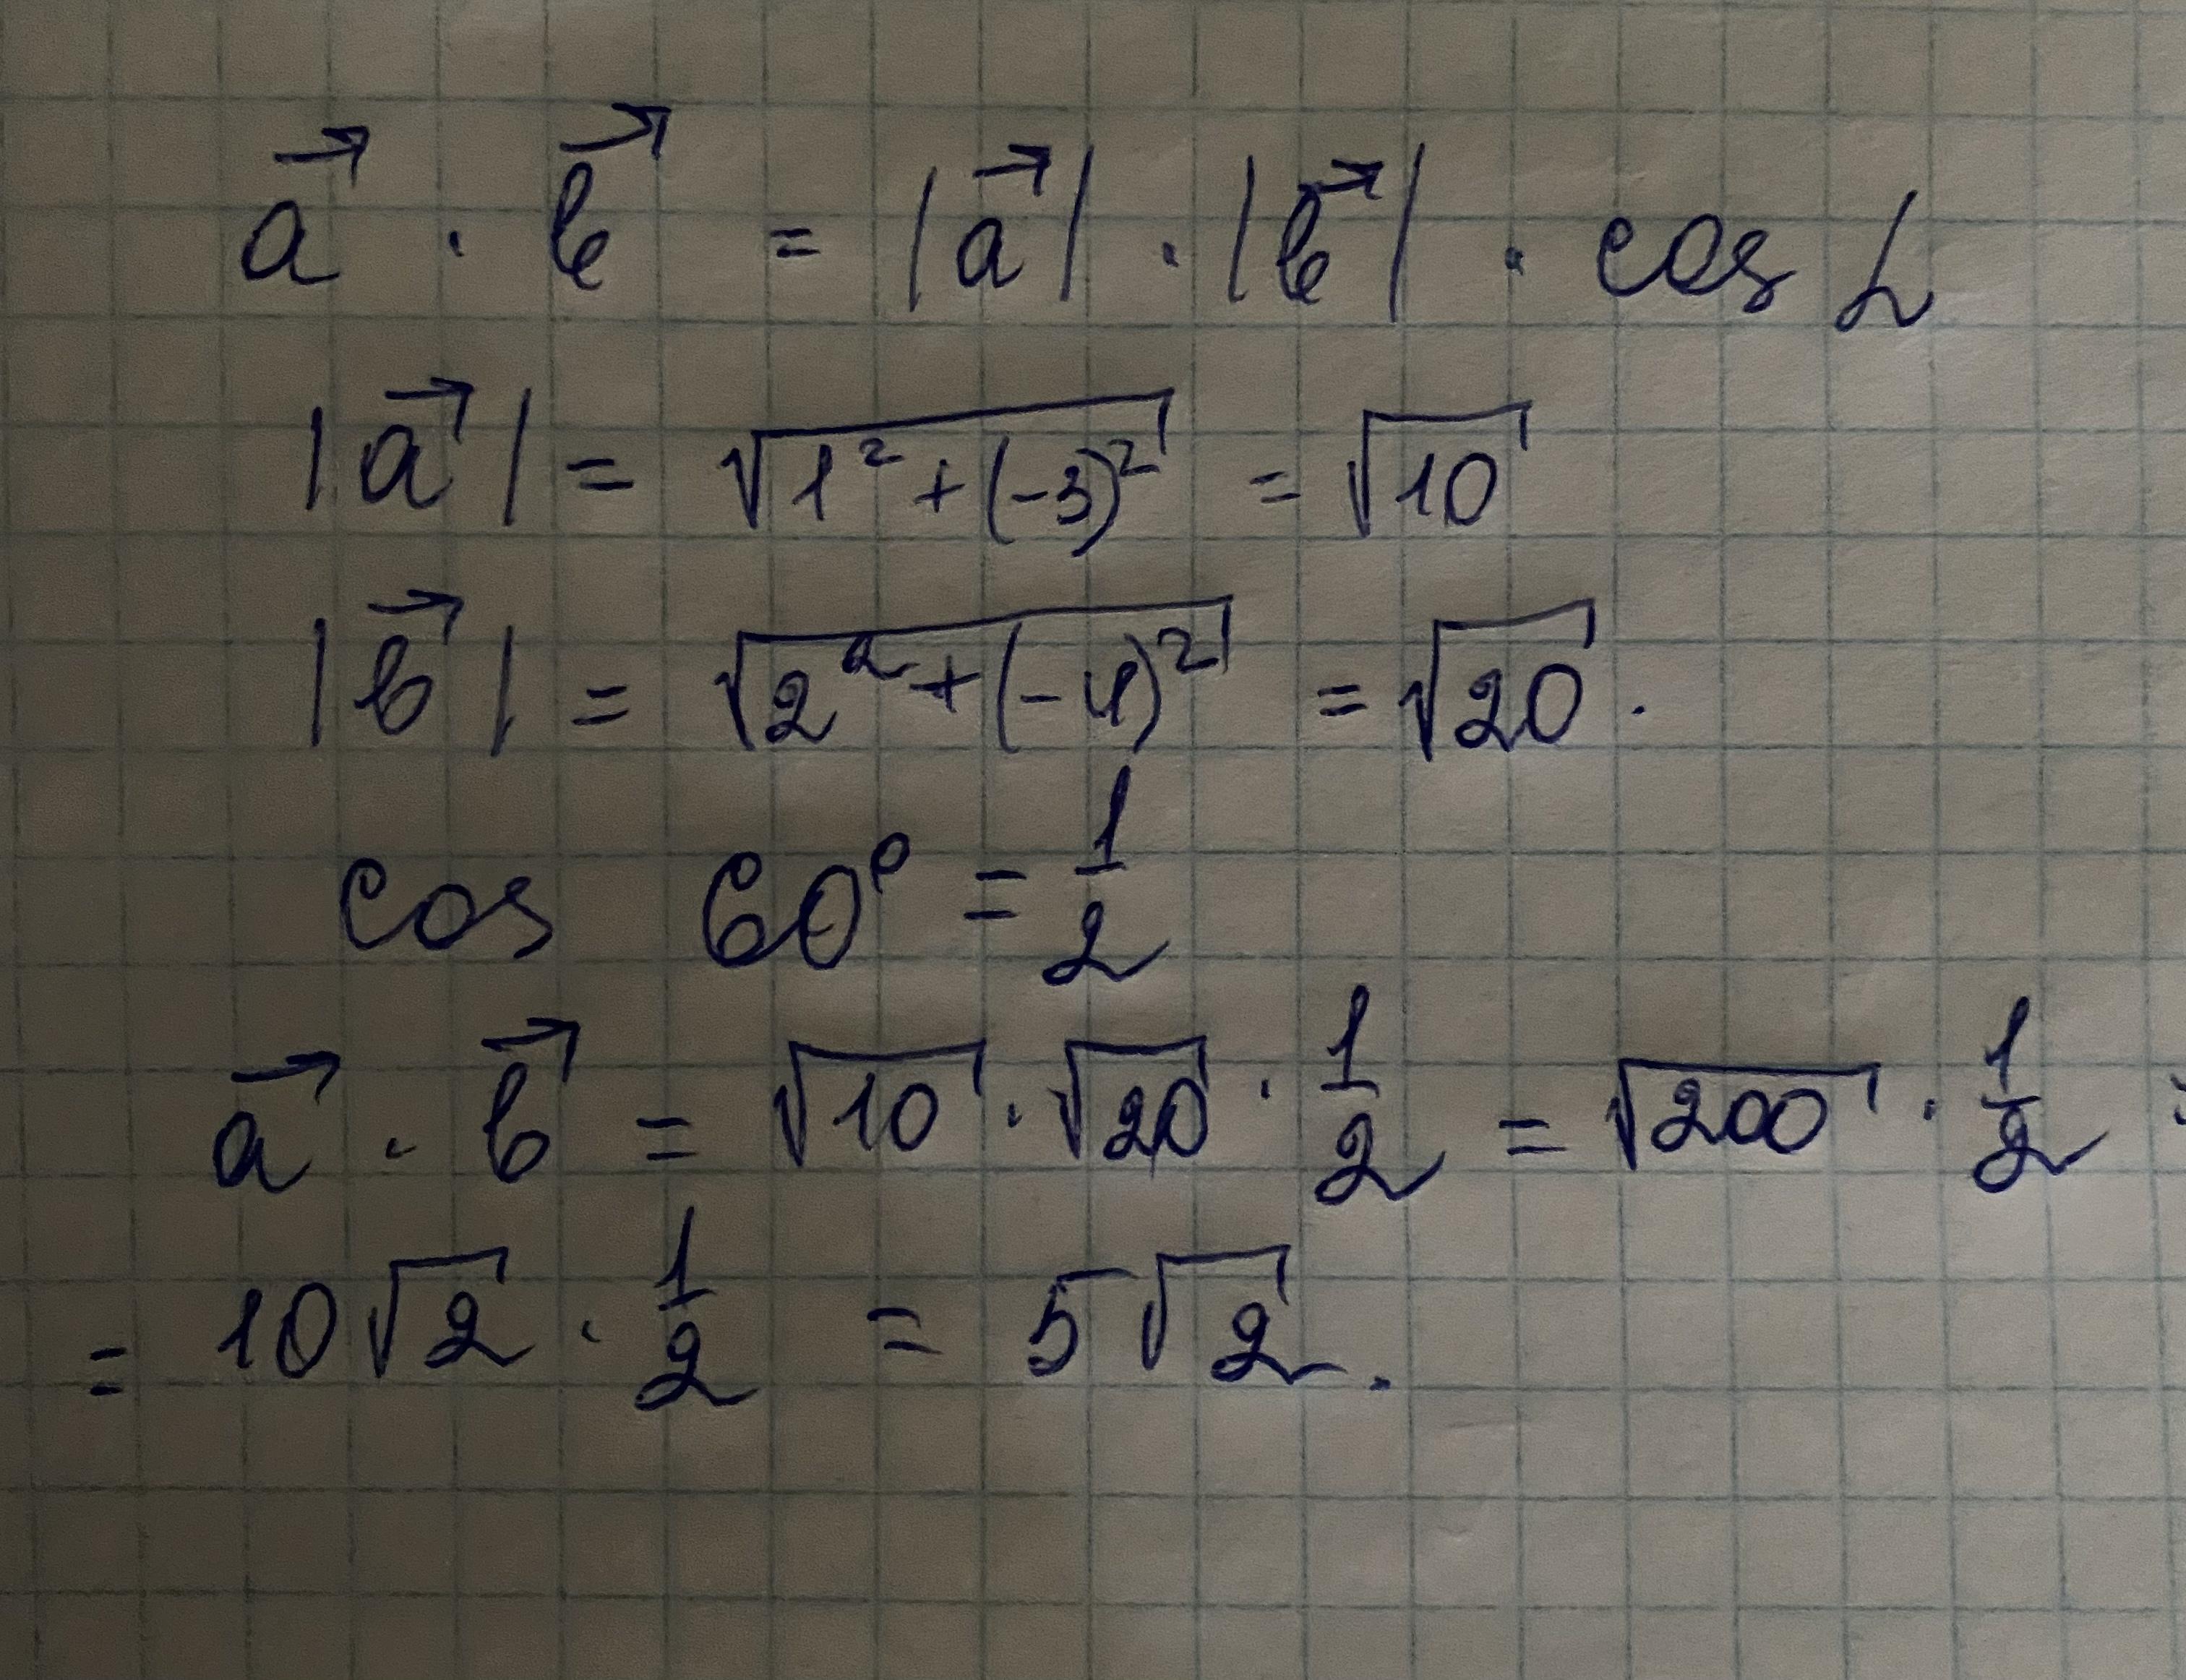 a⃗ · b⃗ = |a⃗| · |b⃗| · cos α
|a⃗| = √(1² + (-3)²) = √10
|b⃗| = √(2² + (-4)²) = √20.
cos 60° = 1/2
a⃗ · b⃗ = √10 · √20 · 1/2 = √200 · 1/2 =
= 10√2 · 1/2 = 5√2.